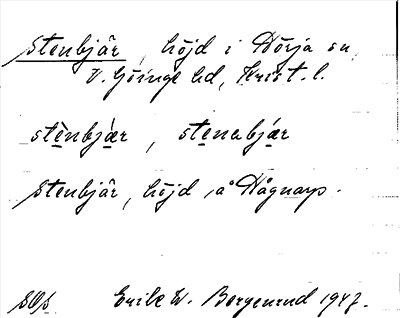 Stenbjär, höjd i Nörja sn,
V. Göinge hd, Krist. l.
stènbjær, stenabjær
Stenbjär, höjd, å Hågnarp.
SOS Erik W. Bergenrud 1947.